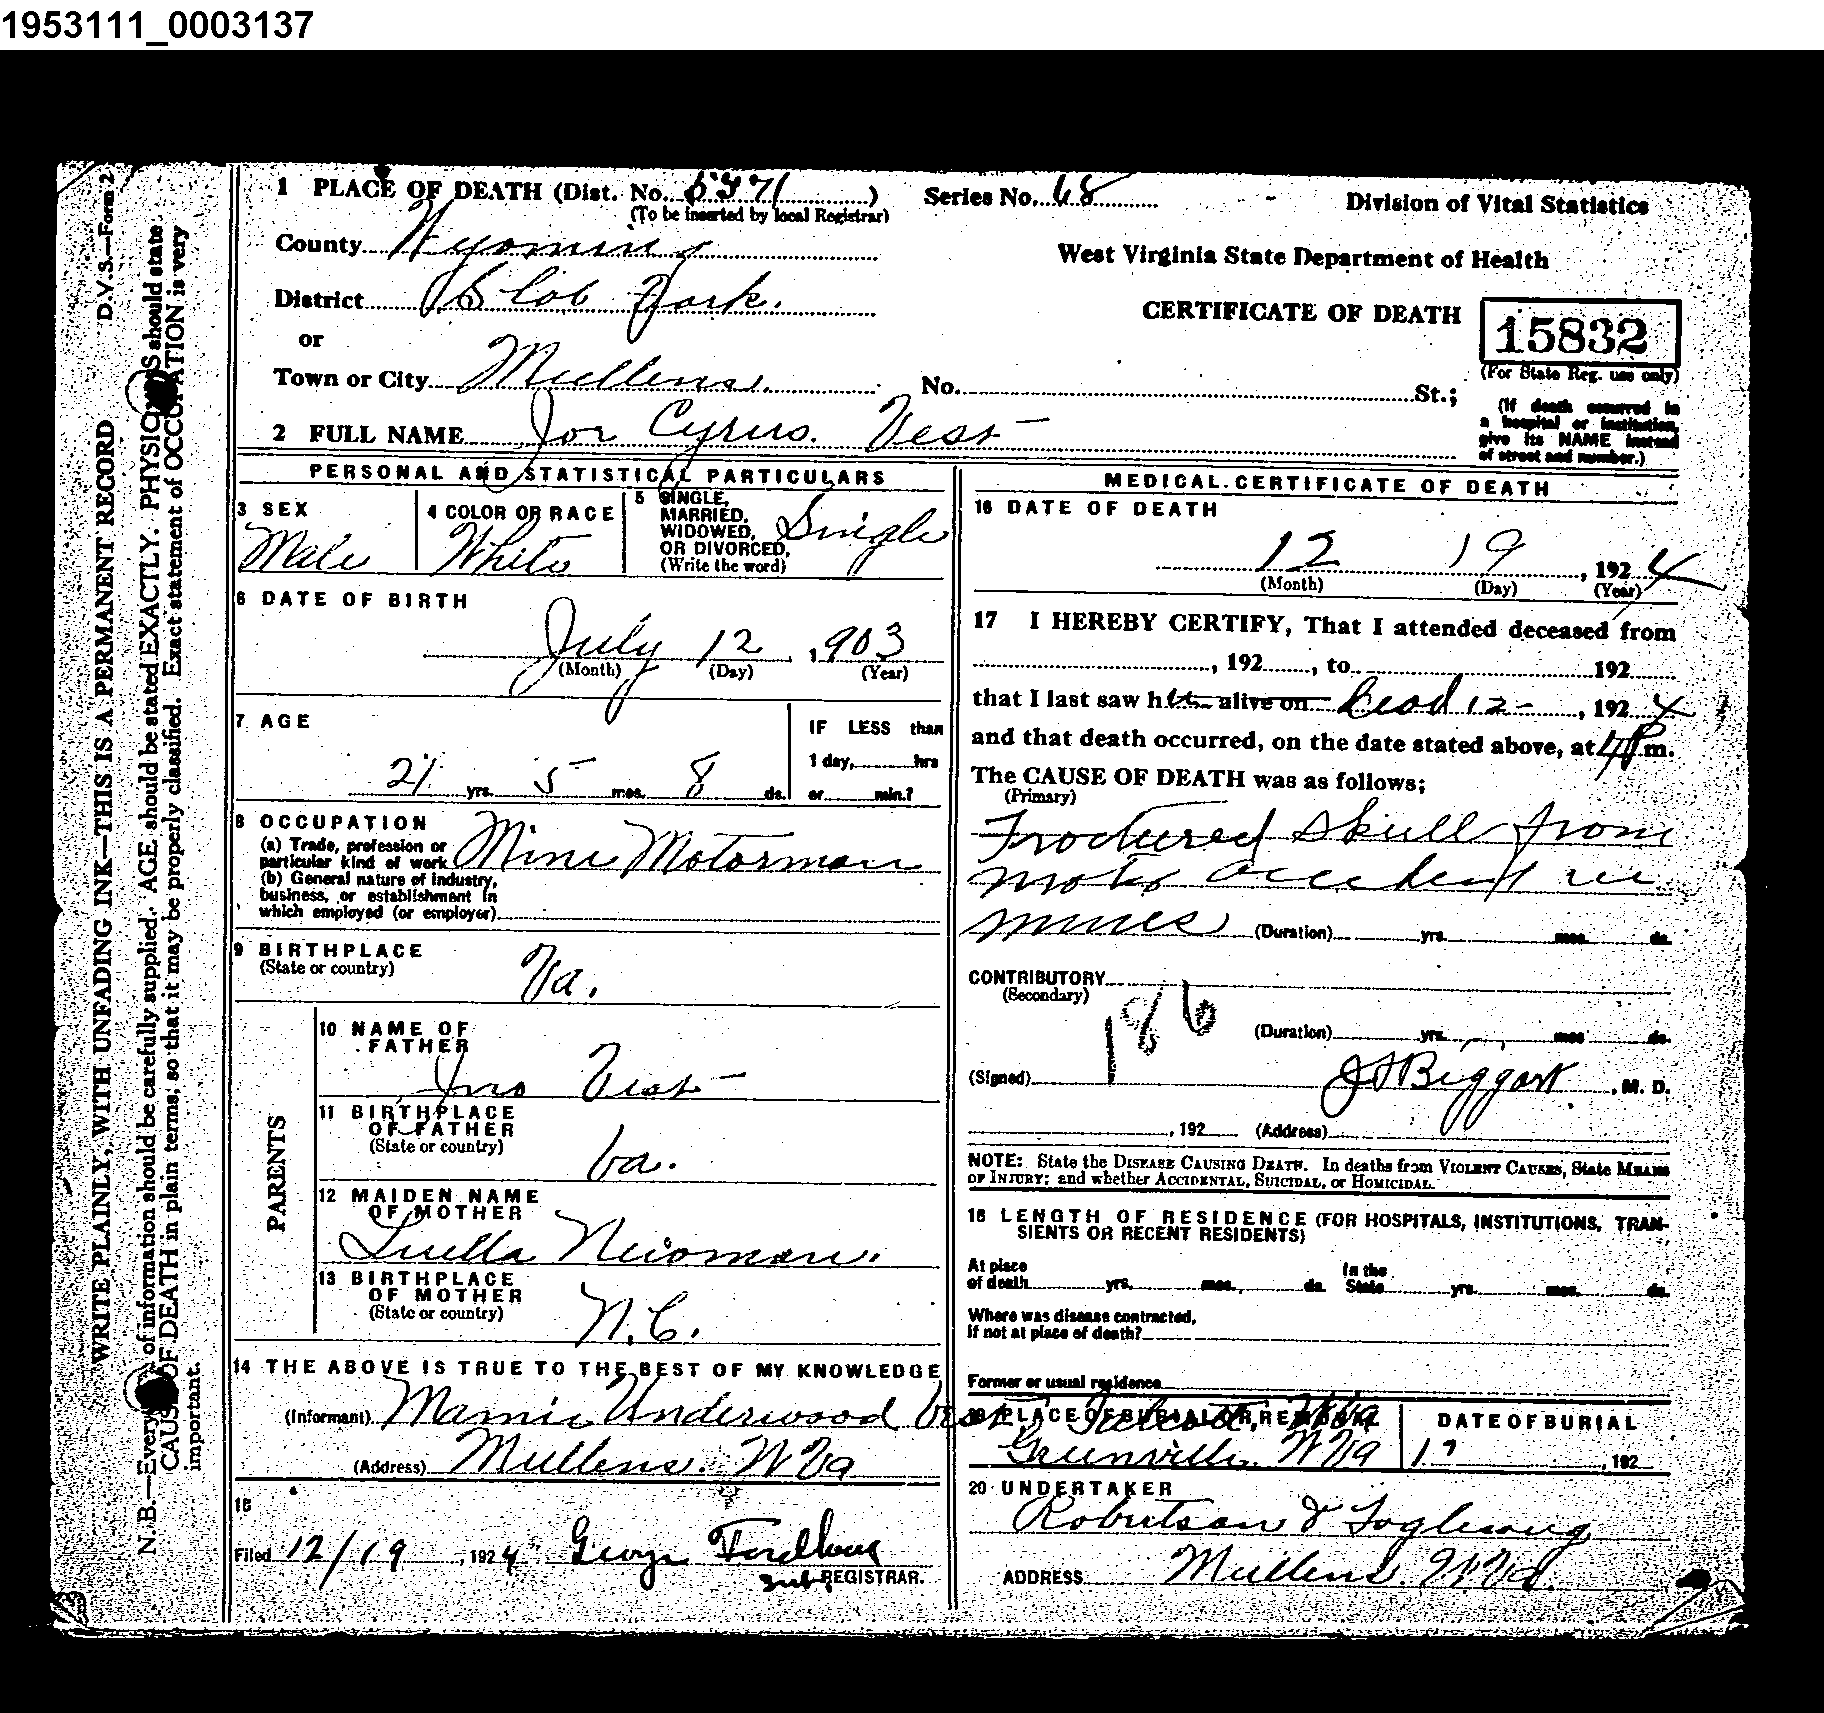 1953111_0003137
1 PLACE OF DEATH (Dist. No. 5371)
(To be inserted by local Registrar)
Series No. 68
Division of Vital Statistics
County Wyoming
West Virginia State Department of Health
District Slab Fork.
CERTIFICATE OF DEATH
15832
(For State Reg. use only)
or
Town or City Mullens.
No. St.;
(If death occurred in
a hospital or institution,
give its NAME instead
of street and number.)
2 FULL NAME Joe Cyrus. Vest
PERSONAL AND STATISTICAL PARTICULARS
3 SEX
Male
4 COLOR OR RACE
White
5 SINGLE,
MARRIED,
WIDOWED,
OR DIVORCED,
(Write the word)
Single
6 DATE OF BIRTH
July 12, 1903
(Month) (Day) (Year)
7 AGE
21 yrs. 5 mos. 8 ds.
IF LESS than
1 day, hrs
or min.?
8 OCCUPATION
(a) Trade, profession or
particular kind of work Mine Motorman
(b) General nature of industry,
business, or establishment in
which employed (or employer)
9 BIRTHPLACE
(State or country)
Va.
PARENTS
10 NAME OF
FATHER
Jno Vest
11 BIRTHPLACE
OF FATHER
(State or country)
Va.
12 MAIDEN NAME
OF MOTHER
Luella Newman.
13 BIRTHPLACE
OF MOTHER
(State or country)
N.C.
14 THE ABOVE IS TRUE TO THE BEST OF MY KNOWLEDGE
(Informant) Mamie Underwood Vest
(Address) Mullens. W Va
15
Filed 12/19, 1924 George
Sub REGISTRAR.
MEDICAL CERTIFICATE OF DEATH
16 DATE OF DEATH
12 19, 1924
(Month) (Day) (Year)
17 I HEREBY CERTIFY, That I attended deceased from
, 192 , to 192
that I last saw h alive on Dead 12-, 1924
and that death occurred, on the date stated above, at 4 P m.
The CAUSE OF DEATH was as follows;
(Primary)
Fractured Skull from
motor accident in
mines (Duration) yrs. mos. ds.
CONTRIBUTORY
(Secondary)
186
(Duration) yrs. mos. ds.
(Signed) Biggart, M. D.
, 192 (Address)
NOTE: State the DISEASE CAUSING DEATH. In deaths from VIOLENT CAUSES, State MEANS
OF INJURY; and whether ACCIDENTAL, SUICIDAL, or HOMICIDAL.
18 LENGTH OF RESIDENCE (FOR HOSPITALS, INSTITUTIONS, TRAN-
SIENTS OR RECENT RESIDENTS)
At place
of death yrs. mos. ds.
In the
State yrs. mos. ds.
Where was disease contracted,
if not at place of death?
Former or usual residence
19 PLACE OF BURIAL OR REMOVAL
Talcott, W Va
Greenville. W Va
DATE OF BURIAL
, 192
20 UNDERTAKER
Robertson &
ADDRESS Mullens. W Va.
D.V.S.—Form 2
WRITE PLAINLY, WITH UNFADING INK—THIS IS A PERMANENT RECORD
N. B.—Every of information should be carefully supplied. AGE should be stated EXACTLY. PHYSICIANS should state
CAUSE OF DEATH in plain terms, so that it may be properly classified. Exact statement of OCCUPATION is very
important.